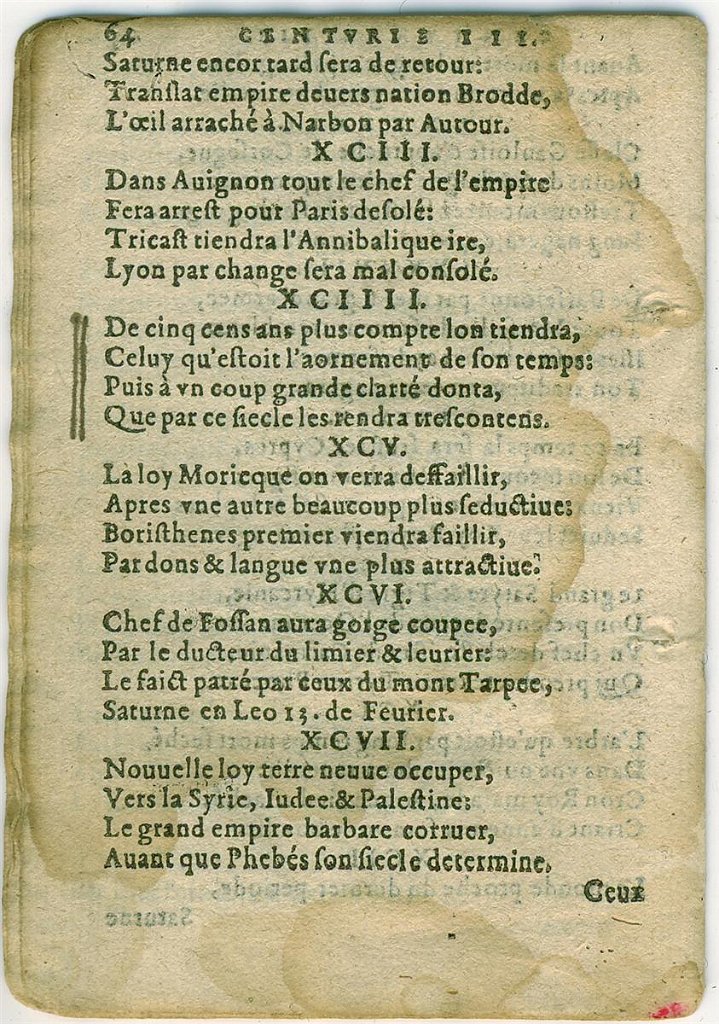 64 CENTVRIE III.
Saturne encor tard ſera de retour:
Tranſlat empire deuers nation Brodde,
L'œil arraché à Narbon par Autour.
XCIII.
Dans Auignon tout le chef de l'empire
Fera arreſt pour Paris deſolé:
Tricaſt tiendra l'Annibalique ire,
Lyon par change ſera mal conſolé.
XCIIII.
De cinq cens ans plus compte lon tiendra,
Celuy qu'eſtoit l'aornement de ſon temps:
Puis à vn coup grande clarté donta,
Que par ce ſiecle les rendra treſcontens.
XCV.
La loy Moricque on verra deffaillir,
Apres vne autre beaucoup plus ſeductiue:
Boriſthenes premier viendra faillir,
Par dons & langue vne plus attractiue.
XCVI.
Chef de Foſſan aura gorge coupee,
Par le ducteur du limier & leurier:
Le faict patré par ceux du mont Tarpee,
Saturne en Leo 13. de Feurier.
XCVII.
Nouuelle loy terre neuue occuper,
Vers la Syrie, Iudee & Paleſtine:
Le grand empire barbare corruer,
Auant que Phebés ſon ſiecle determine.
Ceux